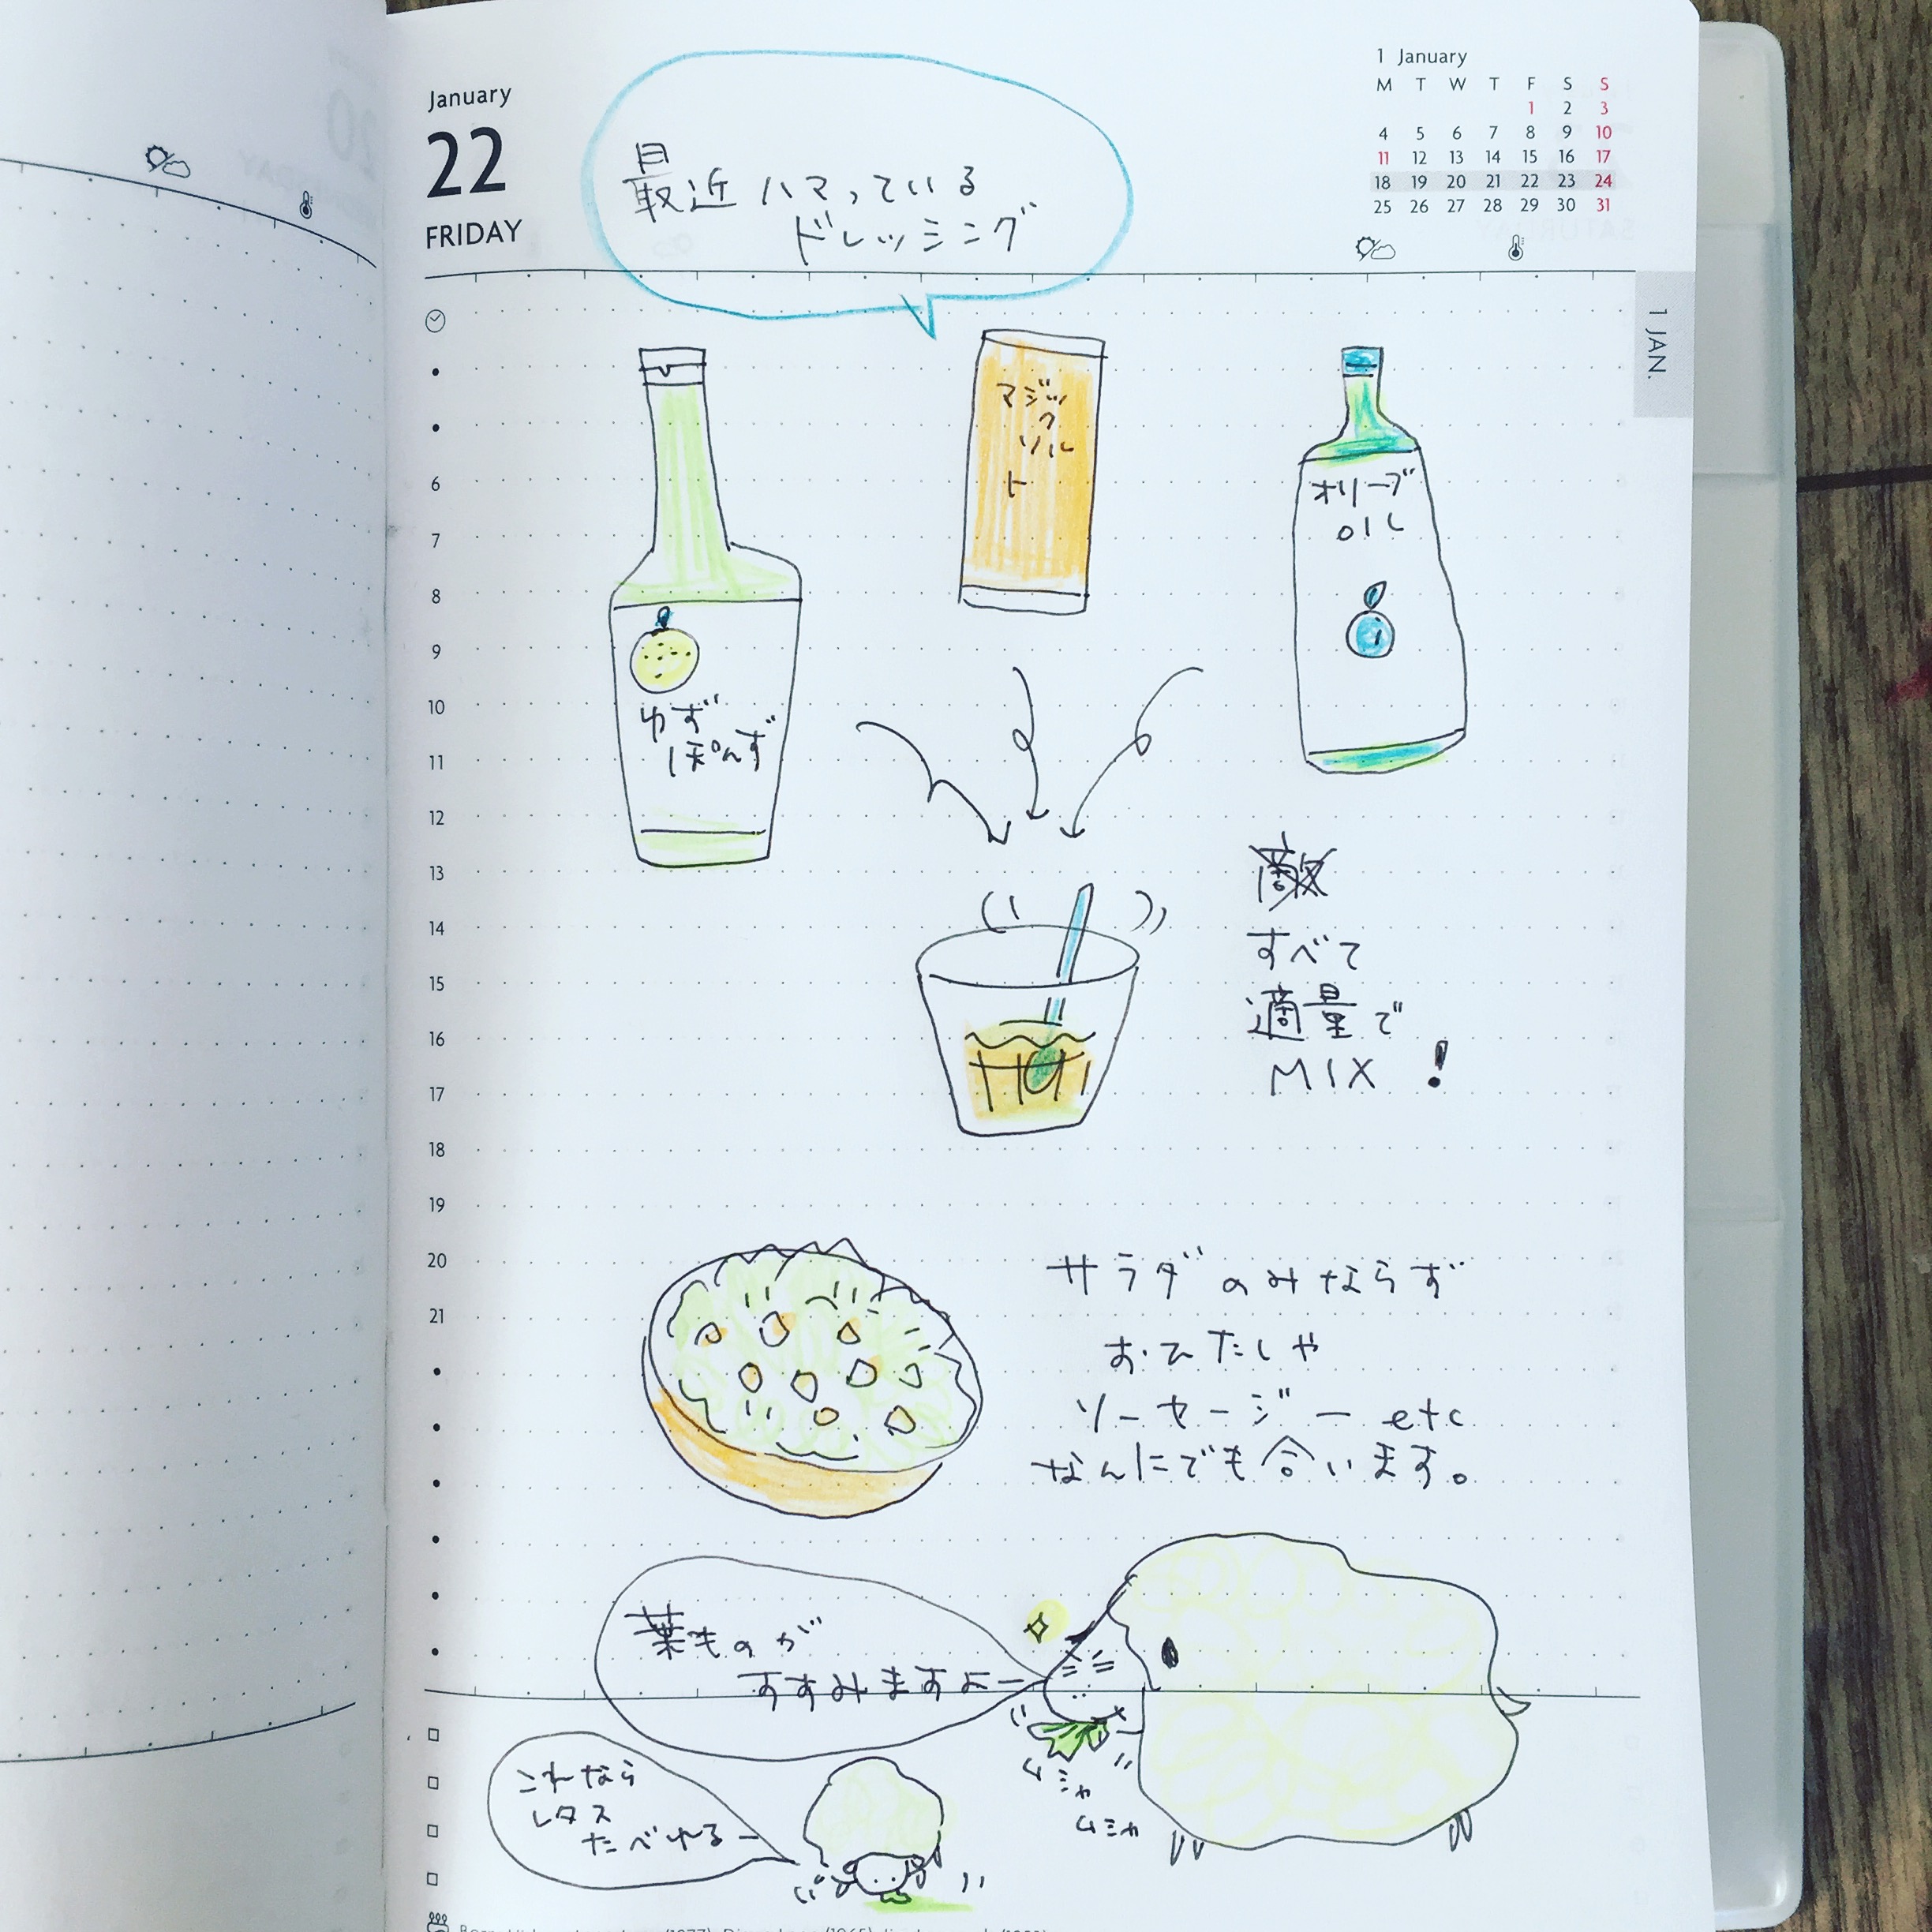 January
22
FRIDAY
最近ハマっている
ドレッシング
1 January
M T W T F S S
1 2 3
4 5 6 7 8 9 10
11 12 13 14 15 16 17
18 19 20 21 22 23 24
25 26 27 28 29 30 31
1 JAN.
マジッ
ク
ソル
ト
オリーブ
オイル
ゆず
ぽんず
6
7
8
9
10
11
12
13
14
15
16
17
18
19
20
21
すべて
適量で
MIX !
サラダのみならず
おひたしや
ソーセージー etc
なんにでも合います。
葉ものが
すすみますよー
ムシャ
ムシャ
これなら
レタス
たべれるー